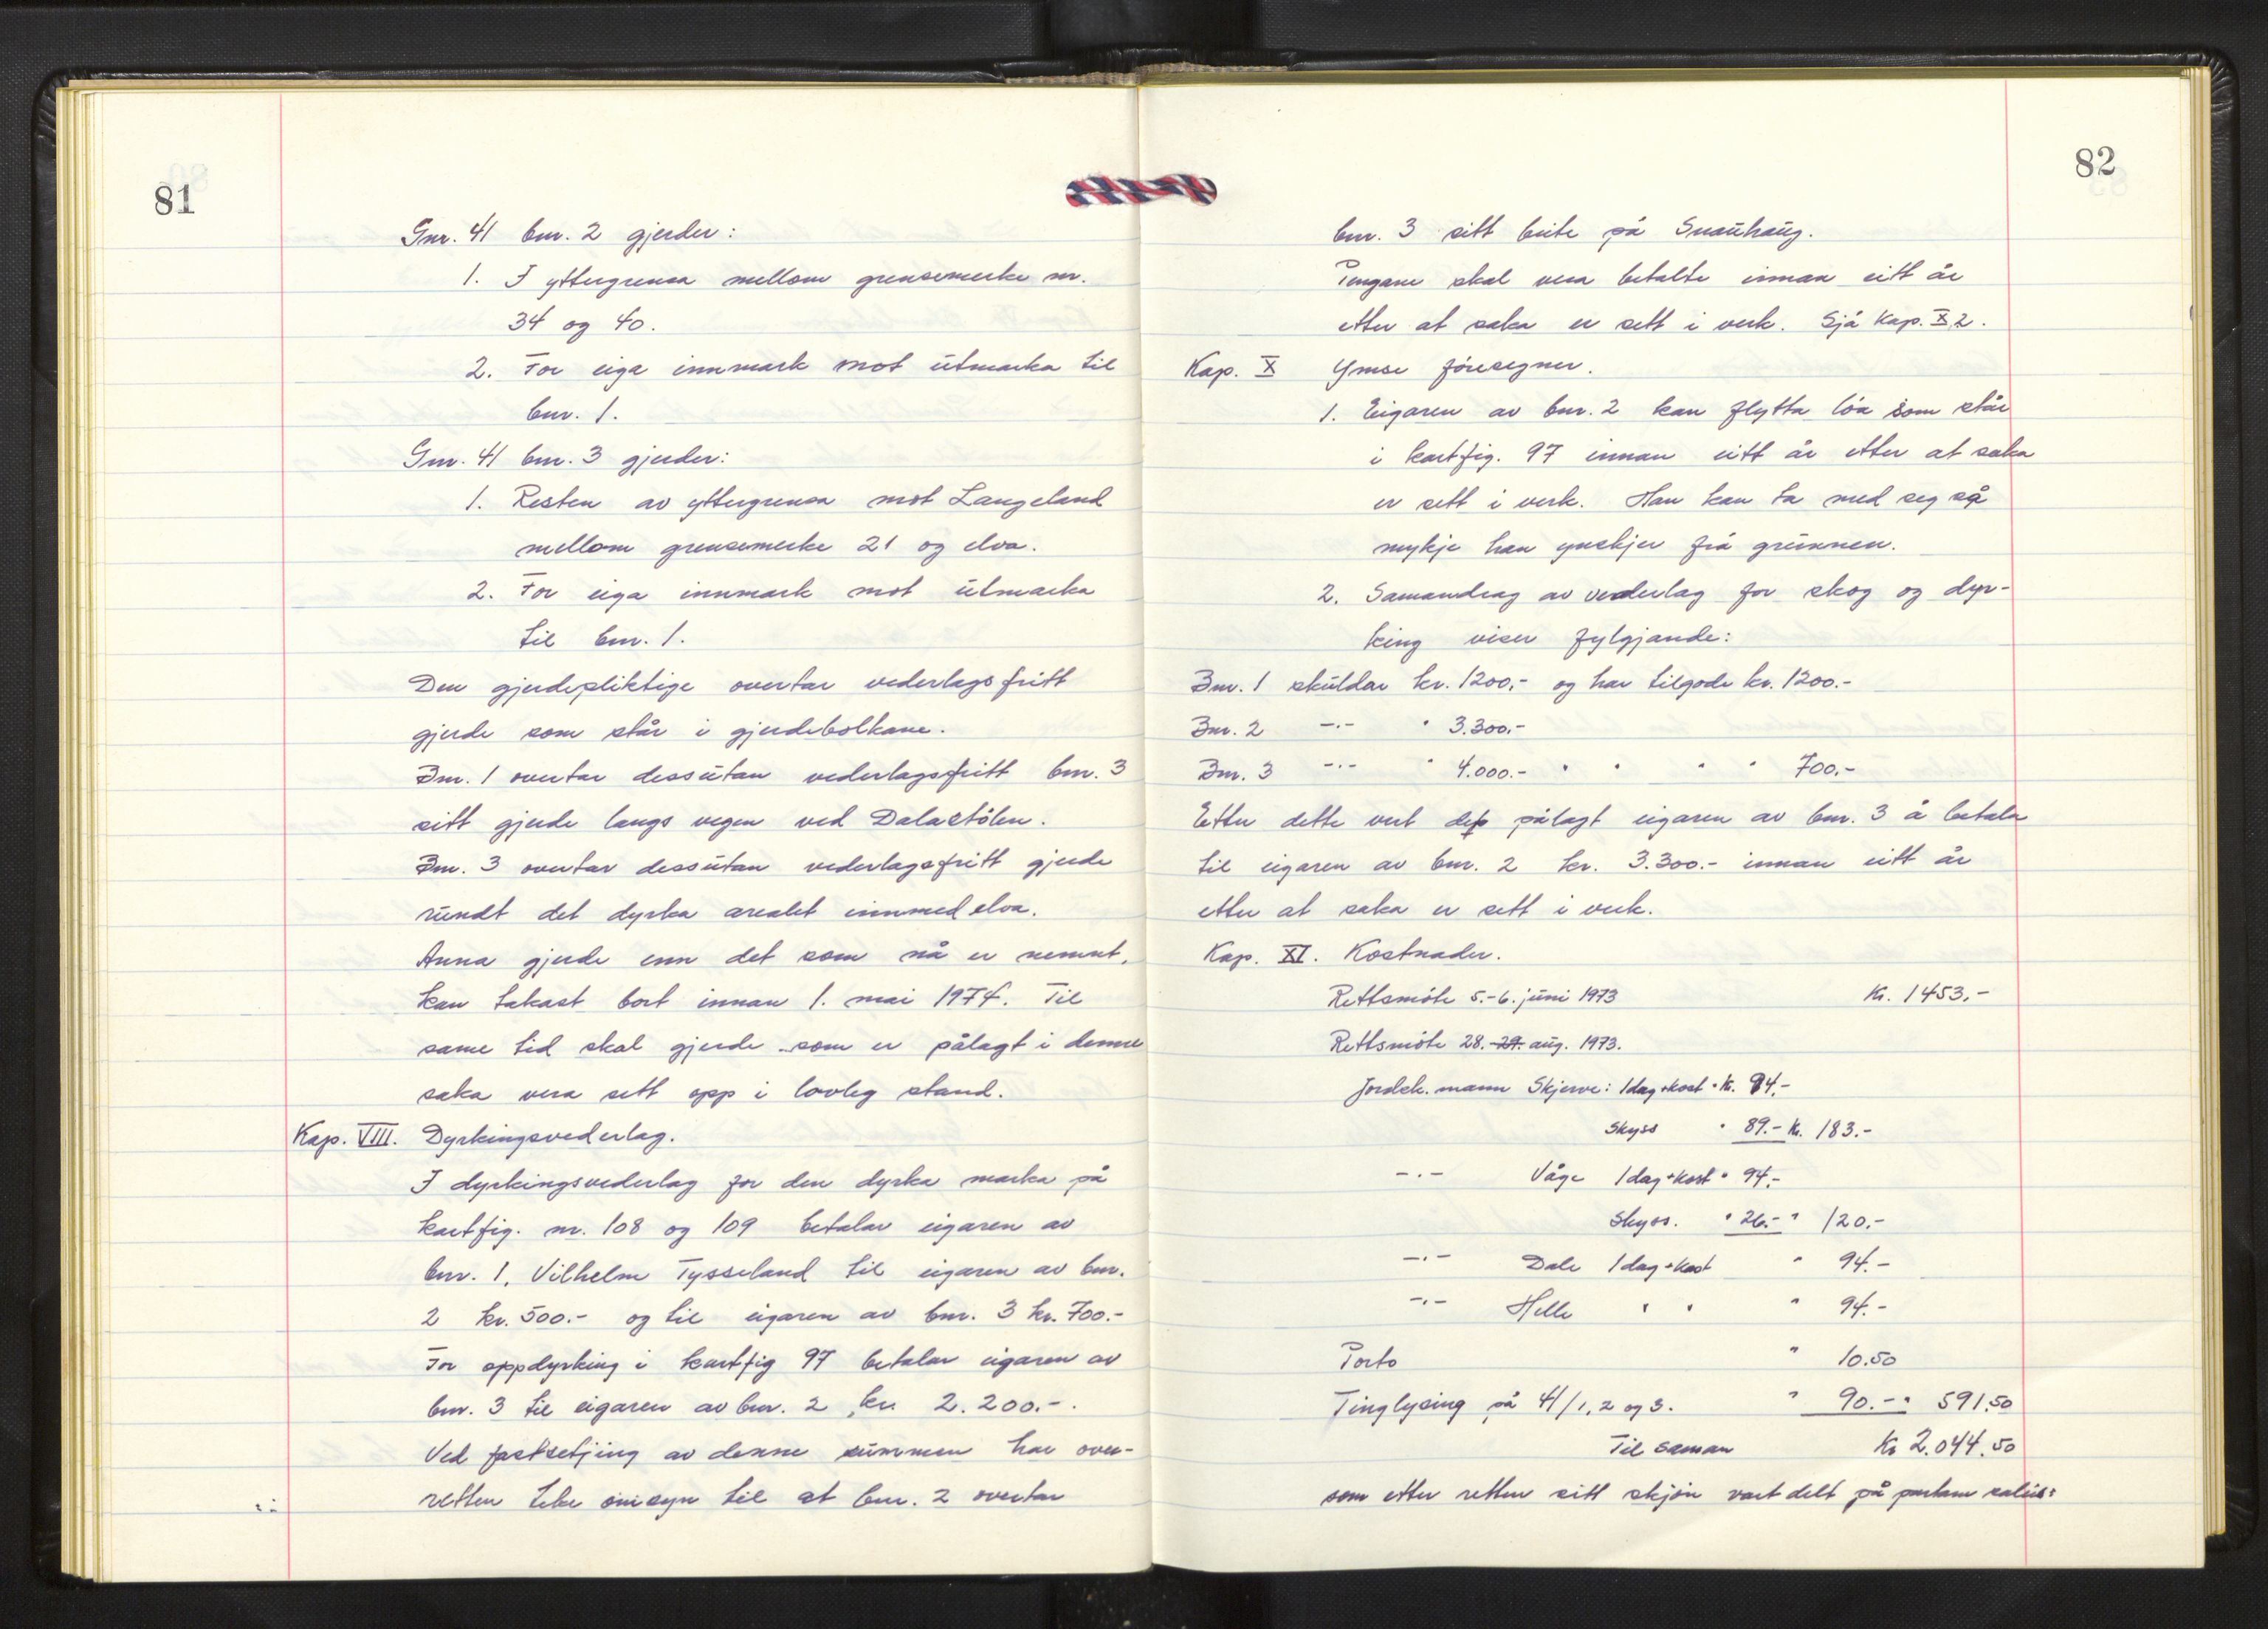 81
Gnr. 41 bnr. 2 gjerder:
1. I yttergrensa mellom grensemerke nr.
34 og 40.
2. For eiga innmark mot utmarka til
bnr. 1.
Gnr. 41 bnr. 3 gjerder:
1. Resten av yttergrensa mot Langeland
mellom grensemerke 21 og elva.
2. For eiga innmark mot utmarka
til bnr. 1.
Den gjerdepliktige overtar vederlagsfritt
gjerde som står i gjerdebolkane.
Bnr. 1 overtar dessutan vederlagsfritt bnr. 3
sitt gjerde langs vegen ved Dalastölen.
Bnr. 3 overtar dessutan vederlagsfritt gjerde
rundt det dyrka arealet innmed elva.
Anna gjerde enn det som nå er nemnt,
kan takast bort innan 1. mai 1974. Til
same tid skal gjerde som er pålagt i denne
saka vera sett opp i lovleg stand.
Kap. VIII. Dyrkingsvederlag.
I dyrkingsvederlag for den dyrka marka på
kartfig. nr. 108 og 109 betalar eigaren av
bnr. 1, Vilhelm Tysseland til eigaren av bnr.
2 kr. 500.- og til eigaren av bnr. 3 kr. 700.-
For oppdyrking i kartfig 97 betalar eigaren av
bnr. 3 til eigaren av bnr. 2 kr. 2.200.-.
Ved fastsetjing av denne summen har over-
retten teke omsyn til at bnr. 2 overtar
82
bnr. 3 sitt beite på Snauhaug.
Pengane skal vera betalte innan eitt år
etter at saka er sett i verk. Sjå Kap. X 2.
Kap. X Ymse föresegner.
1. Eigaren av bnr. 2 kan flytta löa som står
i kartfig. 97 innan eitt år etter at saka
er sett i verk. Han kan ta med seg så
mykje han ynskjer frå grunnen.
2. Samandrag av vederlag for skog og dyr-
king viser fylgjande:
Bnr. 1 skuldar kr. 1200,- og har tilgode kr. 1200.-
Bnr. 2 -.- " 3.300.-
Bnr. 3 -.- " 4.000.- " " " " 700.-
Etter dette vert det pålagt eigaren av bnr. 3 å betala
til eigaren av bnr. 2 kr. 3.300.- innan eitt år
etter at saka er sett i verk.
Kap. XI. Kostnader.
Rettsmöte 5.-6. juni 1973 Kr. 1453,-
Rettsmöte 28.-29. aug. 1973.
Jordsk. mann Skjerve: 1 dag + kost " kr. 94,-
Skyss " 89.- kr. 183.-
-.- Våge 1 dag + kost " 94,-
Skyss. " 26.- " 120.-
-.- Dale 1 dag + kost " 94.-
-.- Helle " " " 94.-
Porto " 10.50
Tinglysing på 41/1, 2 og 3. " 90.- " 591,50
Til saman Kr 2.044,50
som etter retten sitt skjön vart delt på partane saleis: